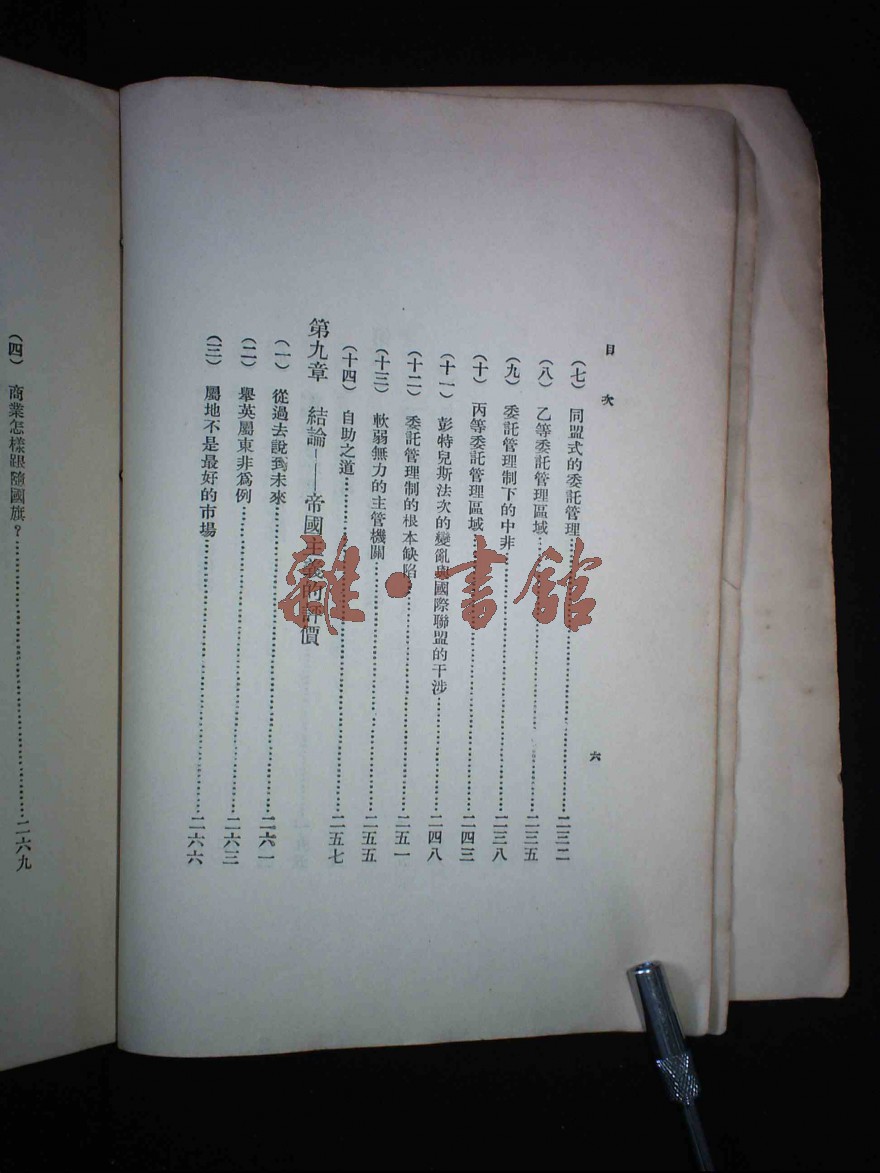 目次
六
（七） 同盟式的委託管理……二三二
（八） 乙等委託管理區域……二三五
（九） 委託管理制下的中非……二三八
（十） 丙等委託管理區域……二四三
（十一） 彭特兒斯法次的變亂與國際聯盟的干涉……二四八
（十二） 委託管理制的根本缺陷……二五一
（十三） 軟弱無力的主管機關……二五五
（十四） 自助之道……二五七
第九章 結論——帝國主義的評價
（一） 從過去說到未來……二六一
（二） 舉英屬東非爲例……二六三
（三） 屬地不是最好的市場……二六六
（四） 商業怎樣跟隨國旗？……二六九
雜·書館